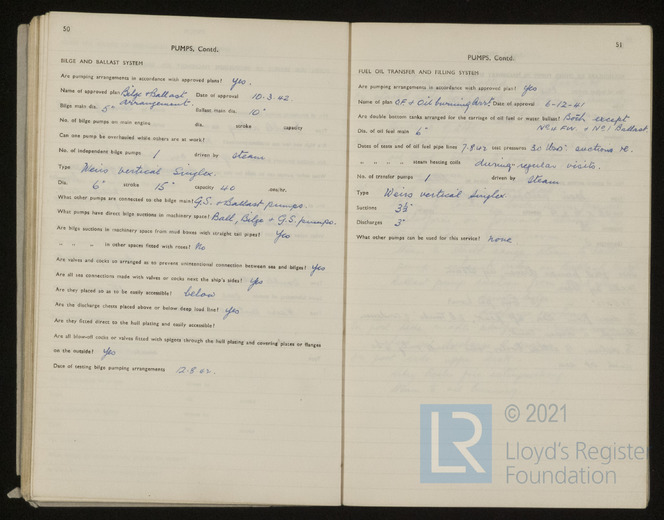 50
PUMPS, Contd.
BILGE AND BALLAST SYSTEM
Are pumping arrangements in accordance with approved plans? Yes.
Name of approved plan Bilge & Ballast arrangement. Date of approval 10.3.42
Bilge main dia. 5" Ballast main dia. 10"
No. of bilge pumps on main engine dia. stroke capacity
Can one pump be overhauled while others are at work?
No. of independent bilge pumps 1 driven by steam
Type Weirs vertical Simplex.
Dia. 6" stroke 15" capacity 40
What other pumps are connected to the bilge main? G.S. & Ballast pumps.
What pumps have direct bilge suctions in machinery space? Ball, Bilge & G.S. pumps.
Are bilge suctions in machinery space from mud boxes with straight tail pipes? Yes
" " " in other spaces fitted with roses? No
Are valves and cocks so arranged as to prevent unintentional connection between sea and bilges? Yes
Are all sea connections made with valves or cocks next the ship's sides? Yes
Are they placed so as to be easily accessible? below
Are the discharge chests placed above or below deep load line? Yes
Are they fitted direct to the hull plating and easily accessible?
Are all blow-off cocks or valves fitted with spigots through the hull plating and covering plates or flanges
on the outside? Yes
Date of testing bilge pumping arrangements
51
PUMPS, Contd.
FUEL OIL TRANSFER AND FILLING SYSTEM
Are pumping arrangements in accordance with approved plan? Yes
Name of plan O.F. & Oil burning Arrt. Date of approval 6-12-41
Are double bottom tanks arranged for the carriage of oil fuel or water ballast? Both except
No 4 F.W. & No 1 Ballast
Dia. of oil fuel main 6"
Dates of tests and of oil fuel pipe lines 7.9.42 test pressures 30 lbs suctions
" " " " steam heating coils during regular visits.
No. of transfer pumps 1 driven by steam
Type Weirs vertical Simplex
Suctions 3½"
Discharges 3"
What other pumps can be used for this service? none
LR
© 2021
Lloyd's Register
Foundation